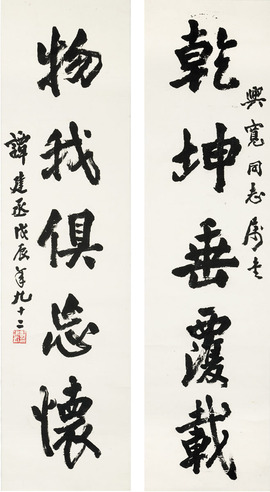 興寬同志屬書
乾坤垂覆載
物我俱忘懷
譚建丞戊辰年九十二